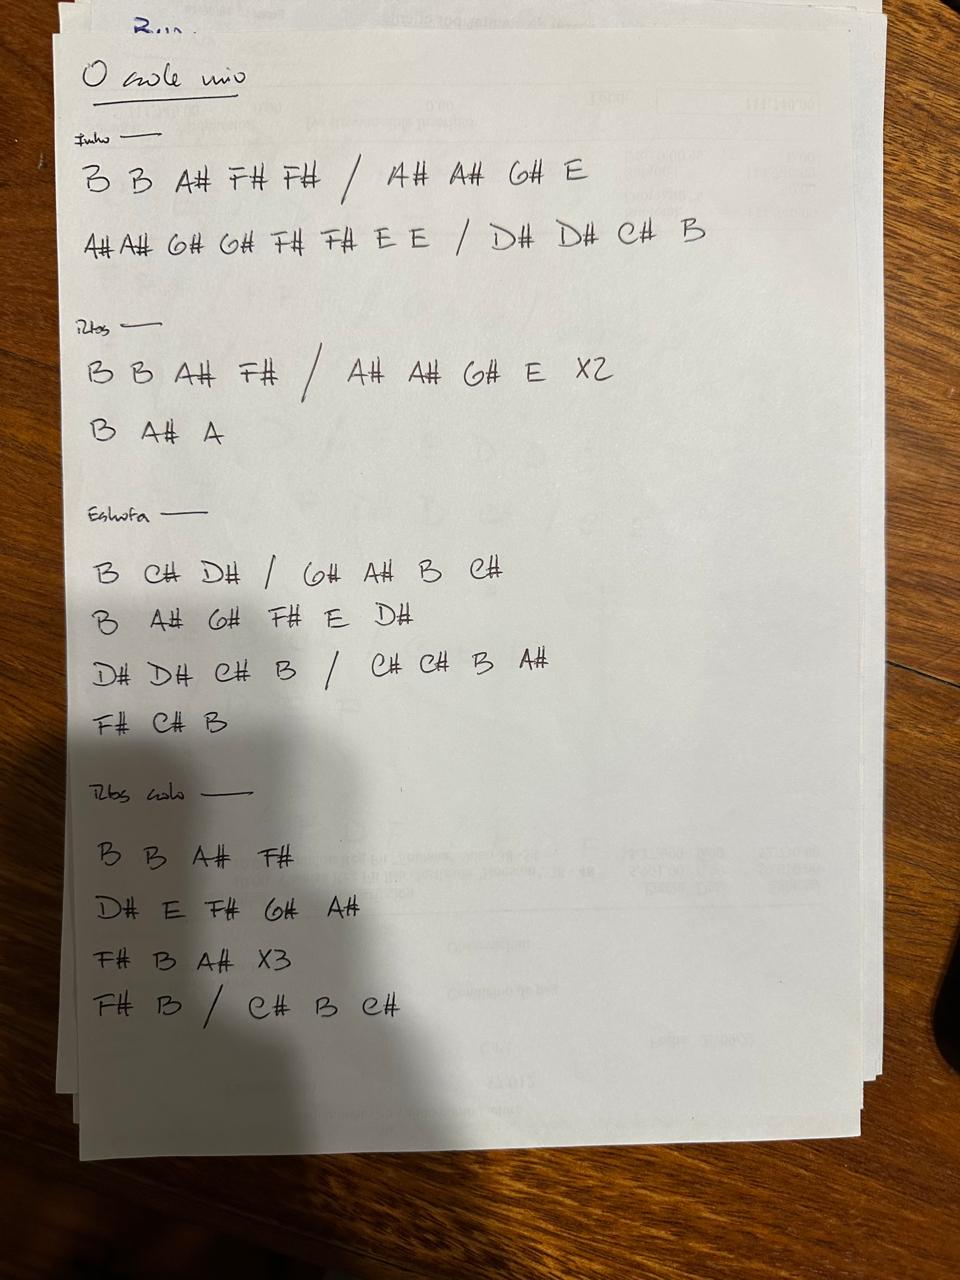 O sole mio
B B A# F# F# / A# A# G# E
A# A# G# G# F# F# E E / D# D# C# B
B B A# F# / A# A# G# E X2
B A# A
Estrofa
B C# D# / G# A# B C#
B A# G# F# E D#
D# D# C# B / C# C# B A#
F# C# B
solo
B B A# F#
D# E F# G# A#
F# B A# X3
F# B / C# B C#